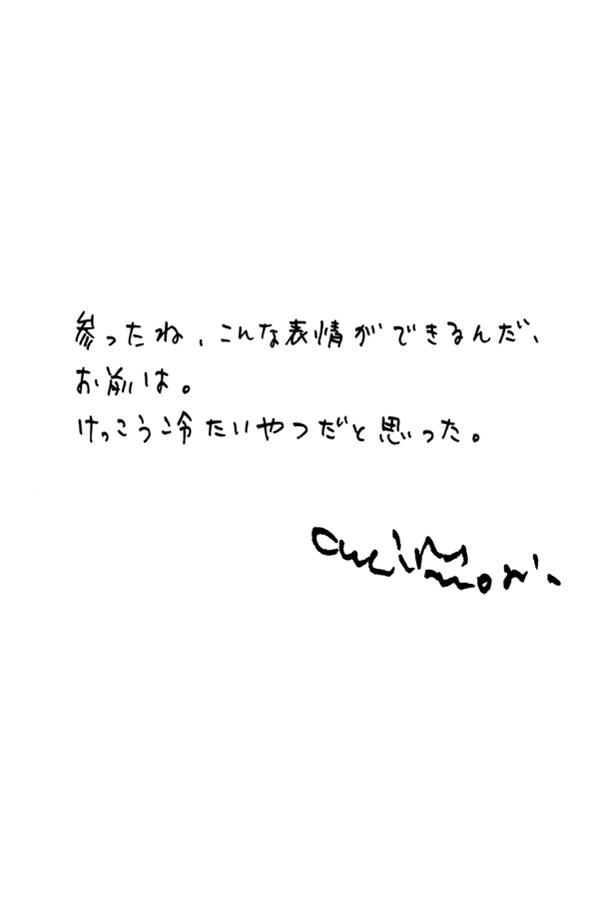 参ったね、こんな表情ができるんだ、
お前は。
けっこう冷たいやつだと思った。